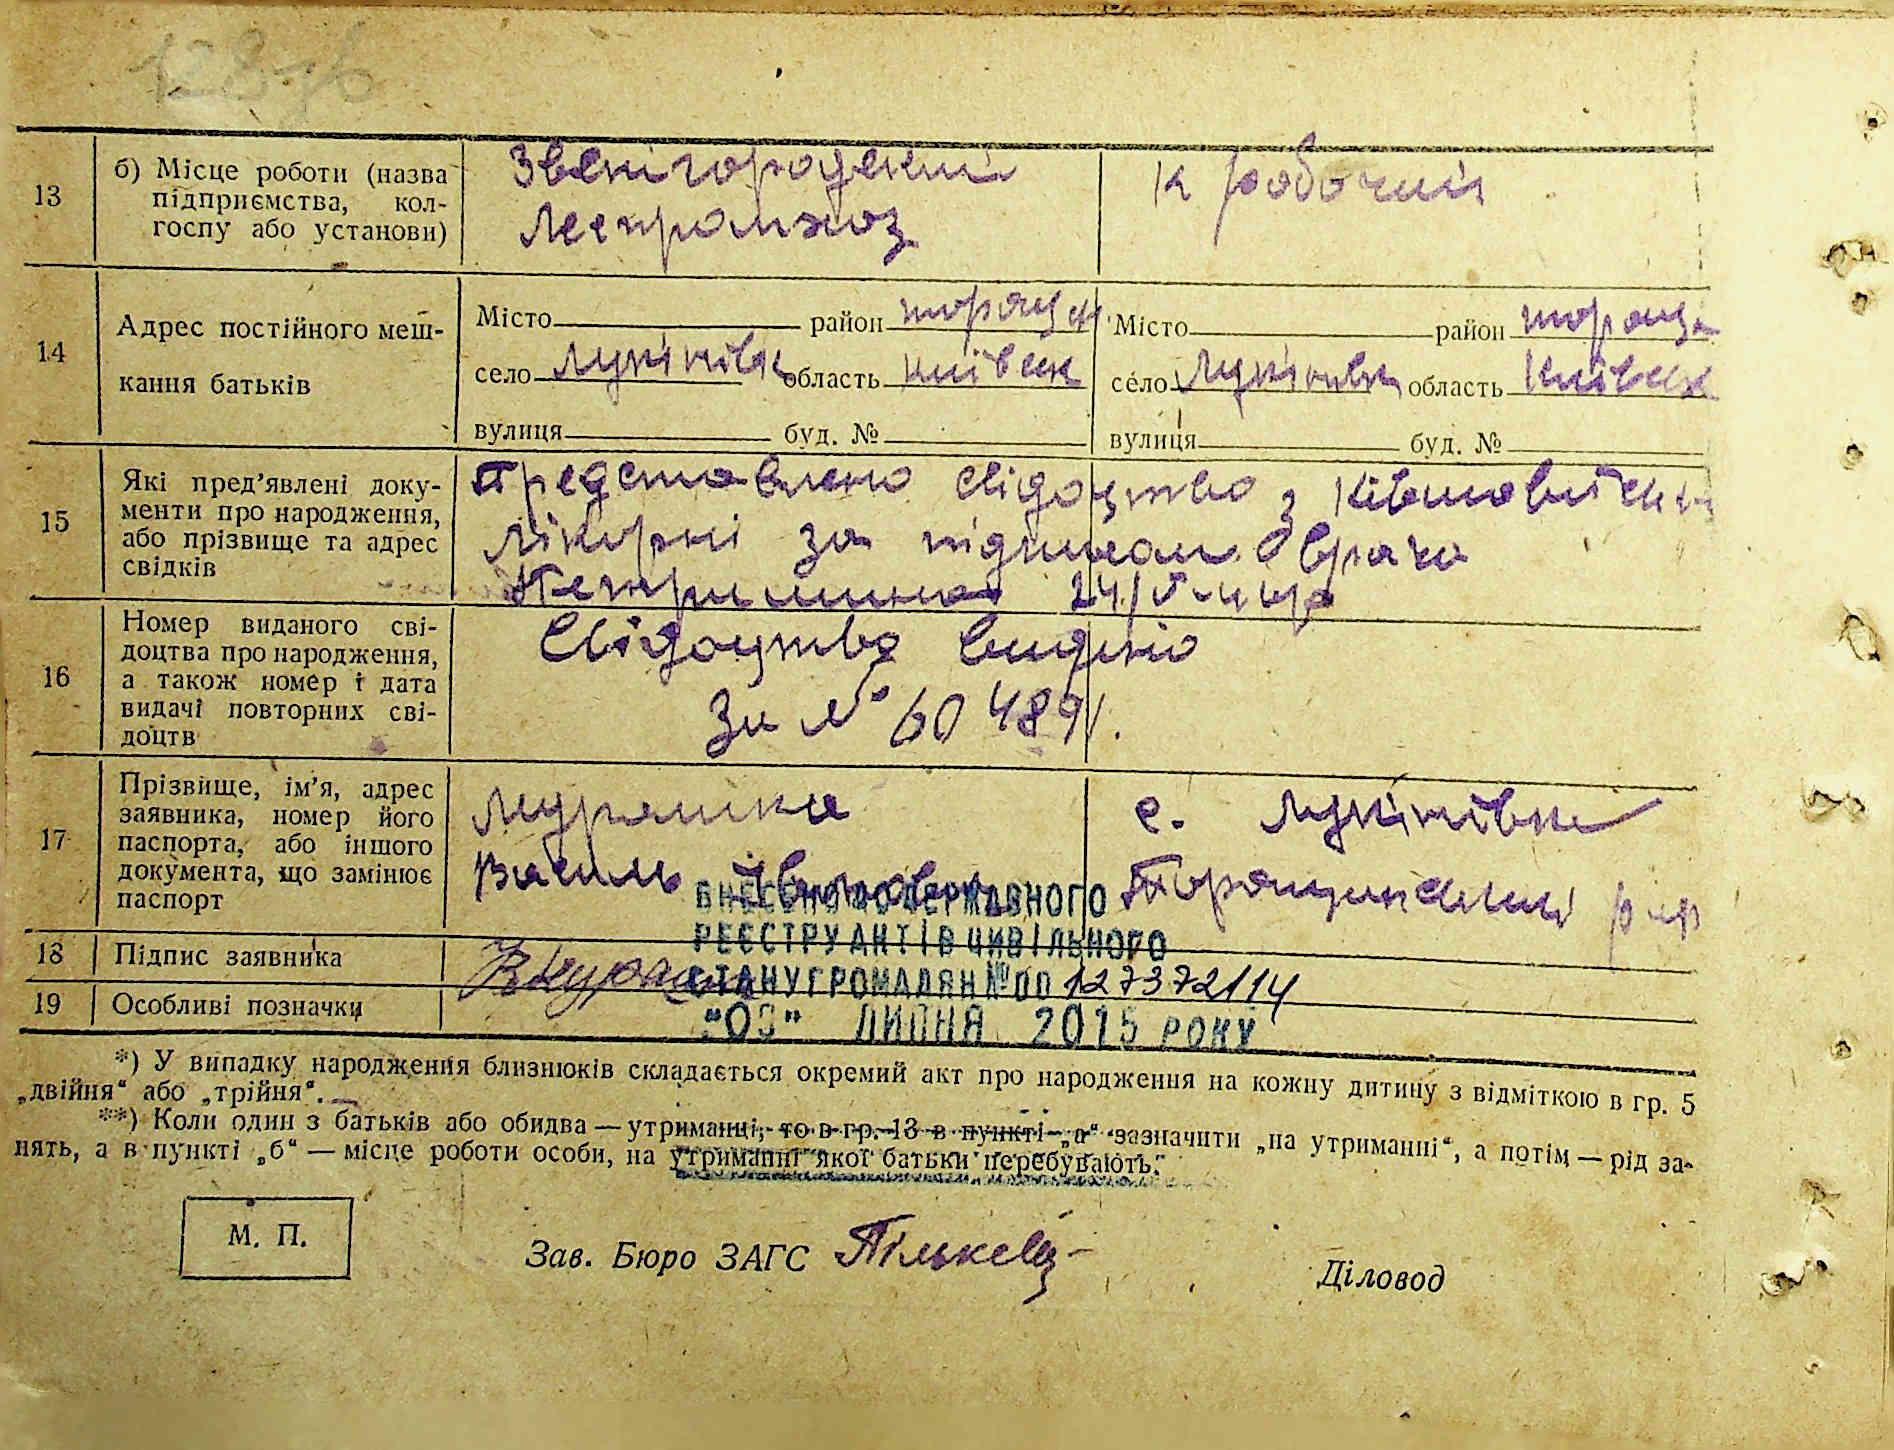 13
б) Місце роботи (назва
підприємства, кол-
госпу або установи)
Звенігородский
Леспромхоз
к робочий
14
Адрес постійного меш-
кання батьків
Місто район торащ
село Лукінівк область київск
вулиця буд. №
Місто район торащ
село Лукінівк область київск
вулиця буд. №
15
Які пред’явлені доку-
менти про народження,
або прізвище та адрес
свідків
Представлено свідоцтво з
лікарні за підписом врача
16
Номер виданого сві-
доцтва про народження,
а також номер і дата
видачі повторних сві-
доцтв
Свідоцтво видано
За № 60489
17
Прізвище, ім’я, адрес
заявника, номер його
паспорта, або іншого
документа, що замінює
паспорт
Мурашка
Василь
с. Лукінівка
18
Підпис заявника
19
Особливі позначки
ВНЕСЕНО ДО ДЕРЖАВНОГО
РЕЄСТРУ АКТІВ ЦИВІЛЬНОГО
СТАНУ ГРОМАДЯН № 00127372114
ЛИПНЯ 2015 РОКУ
*) У випадку народження близнюків складається окремий акт про народження на кожну дитину з відміткою в гр. 5
„двійня“ або „трійня“.
**) Коли один з батьків або обидва — утриманці, то в гр. 13 в пункті „а“ зазначити „на утриманні“, а потім — рід за-
нять, а в пункті „б“ — місце роботи особи, на утриманні якої батьки перебувають.
М. П.
Зав. Бюро ЗАГС
Діловод